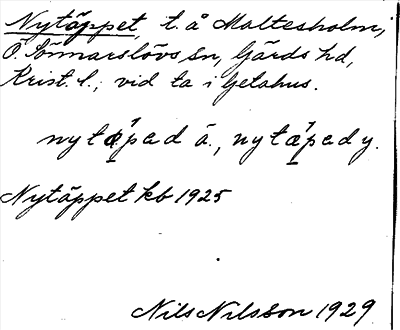 Nytäppet, t. å Maltesholm,
Ö. Sönnarslövs sn, Gärds hd,
Krist. l.; vid ta i Getahus.
nytæpad á., nytæpad y.
Nytäppet kb 1925
Nils Nilsson 1929